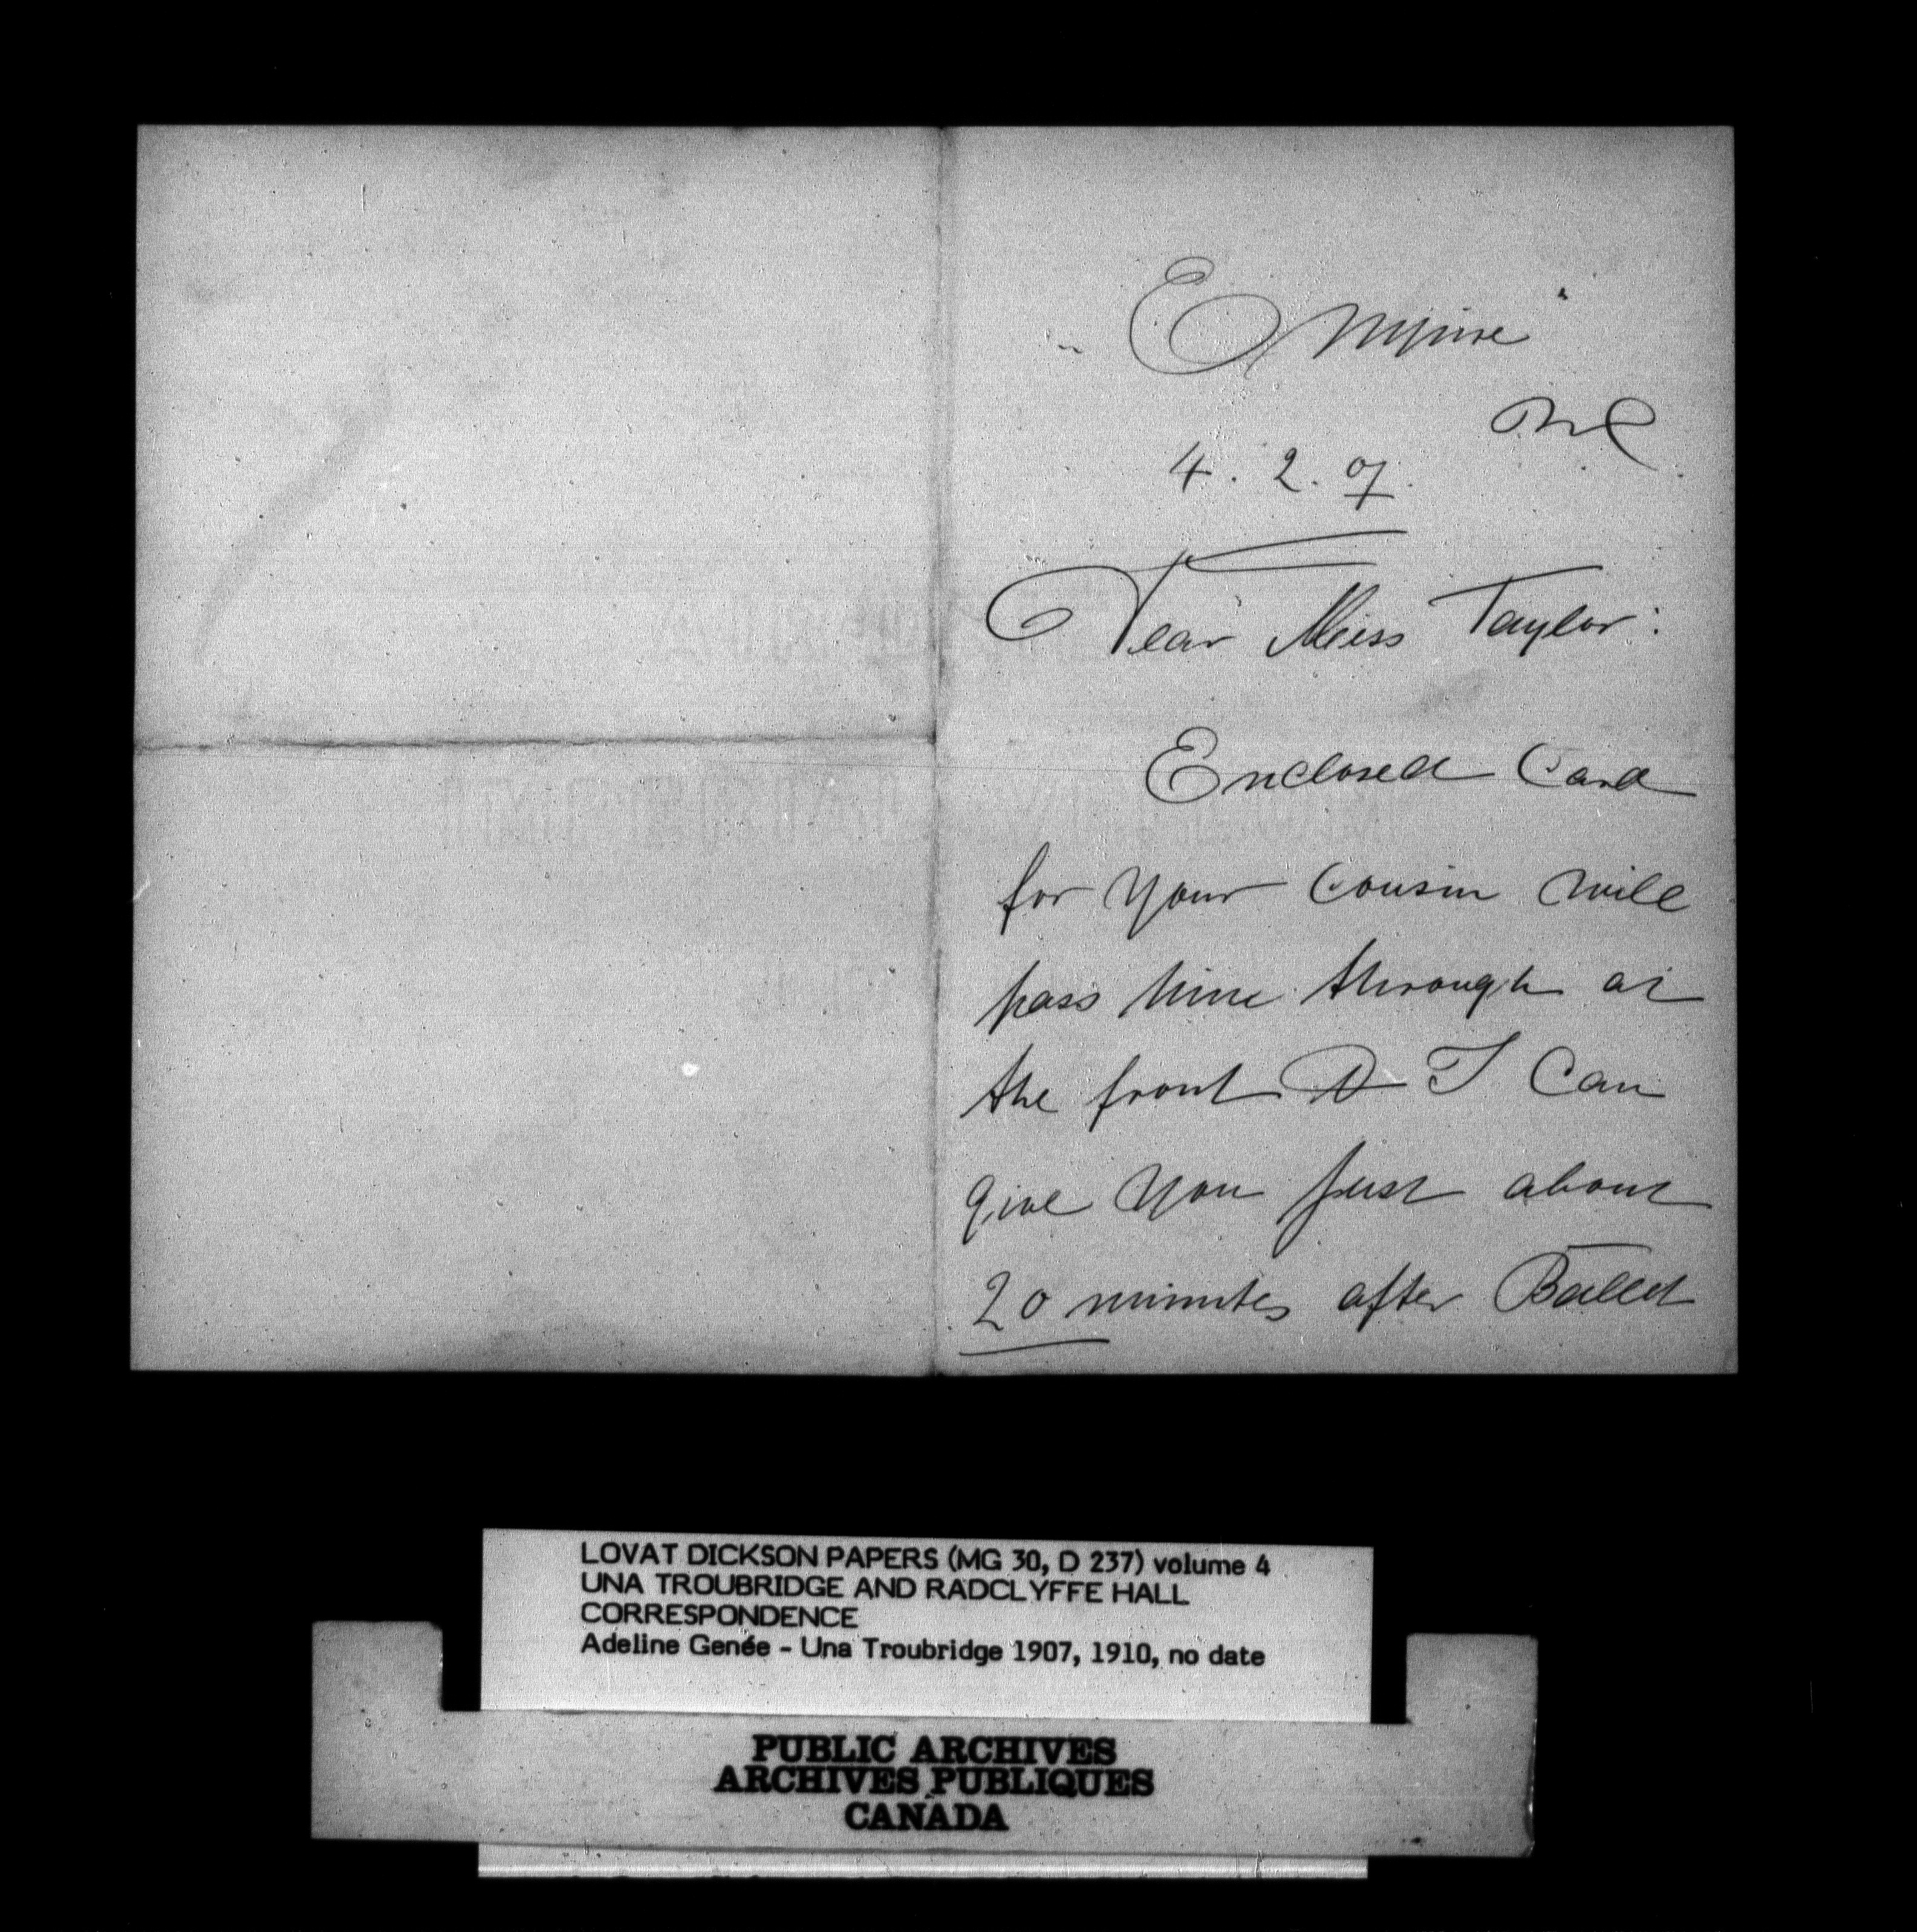 "Empire"
4.2.07.
Dear Miss Taylor:
Enclosed Card
for your cousin will
pass him through at
the front I Can
give you just about
20 minutes after Ballet
LOVAT DICKSON PAPERS (MG 30, D 237) volume 4
UNA TROUBRIDGE AND RADCLYFFE HALL
CORRESPONDENCE
Adeline Genée - Una Troubridge 1907, 1910, no date
PUBLIC ARCHIVES
ARCHIVES PUBLIQUES
CANADA